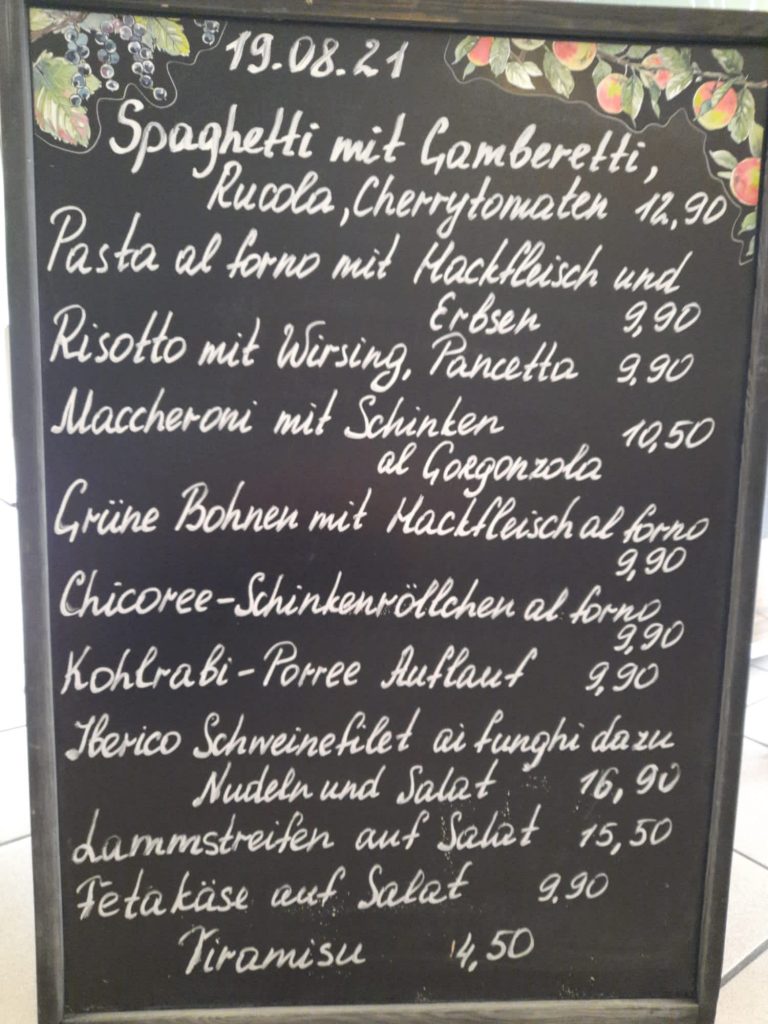 19.08.21
Spaghetti mit Gamberetti,
Rucola, Cherrytomaten 12,90
Pasta al forno mit Hackfleisch und
Erbsen 9,90
Risotto mit Wirsing, Pancetta 9,90
Maccheroni mit Schinken 10,50
al Gorgonzola
Grüne Bohnen mit Hackfleisch al forno
9,90
Chicoree-Schinkenröllchen al forno
9,90
Kohlrabi-Porree Auflauf 9,90
Iberico Schweinefilet ai funghi dazu
Nudeln und Salat 16,90
Lammstreifen auf Salat 15,50
Fetakäse auf Salat 9.90
Tiramisu 4,50